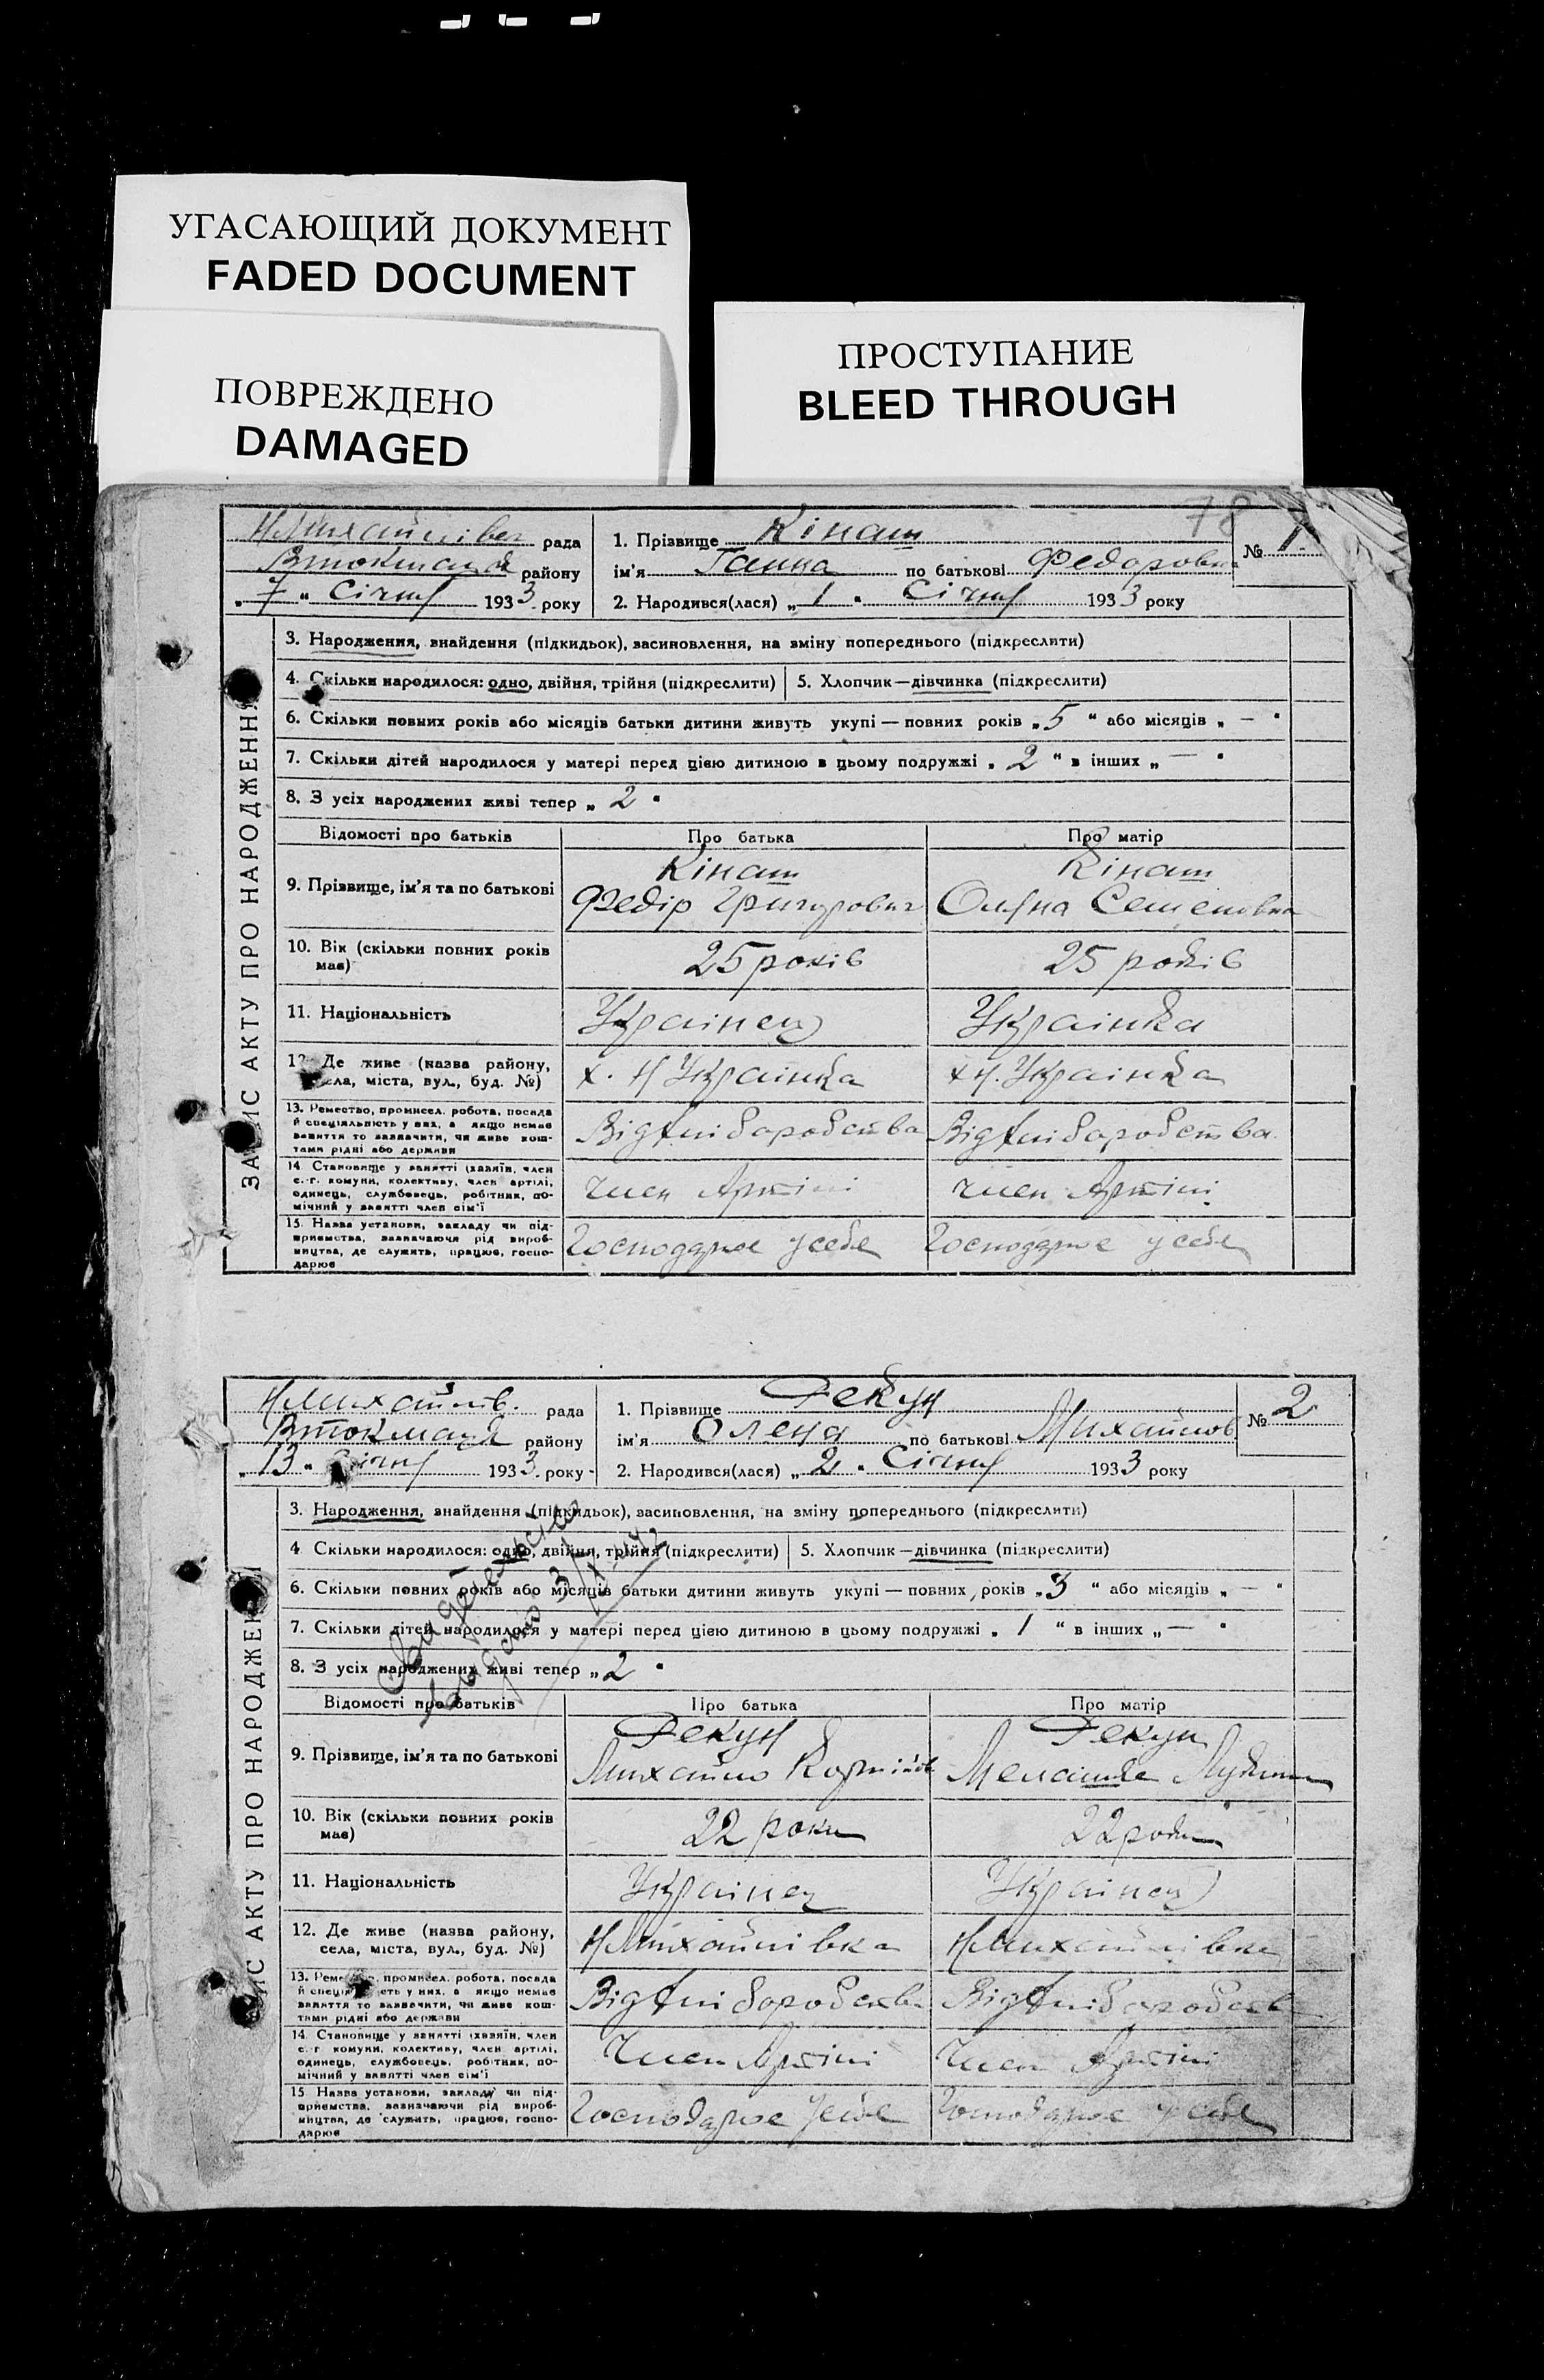 УГАСАЮЩИЙ ДОКУМЕНТ
FADED DOCUMENT
ПОВРЕЖДЕНО
DAMAGED
ПРОСТУПАНИЕ
BLEED THROUGH
78
рада
району
„ 7 “ Січня 1933 року
1. Прізвище Кінаш
ім'я Ганна по батькові Федоровна
2. Народився(лася) „ 1 “ Січня 1933 року
№ 1
ЗАПИС АКТУ ПРО НАРОДЖЕННЯ
3. Народження, знайдення (підкидьок), засиновлення, на зміну попереднього (підкреслити)
4. Скільки народилося: одно, двійня, трійня (підкреслити)
5. Хлопчик—дівчинка (підкреслити)
6. Скільки повних років або місяців батьки дитини живуть укупі — повних років „ 5 “ або місяців „ — “
7. Скільки дітей народилося у матері перед цією дитиною в цьому подружжі „ 2 “ в інших „ — “
8. З усіх народжених живі тепер „ 2 “
Відомості про батьків
Про батька
Про матір
9. Прізвище, ім'я та по батькові
Кінаш
Федір Григорович
Кінаш
Олена Семеновна
10. Вік (скільки повних років
має)
25 років
25 років
11. Національність
Українец
Українка
12. Де живе (назва району,
села, міста, вул., буд. №)
х. Н Українка
х Н. Українка
13. Ремество, промисел, робота, посада
й спеціяльність у них, а якщо немає
заняття то зазначити, чи живе кош-
тами рідні або держави
14. Становище у занятті (хазяїн, член
с.-г. комуни, колективу, член артілі,
одинець, службовець, робітник, по-
мічний у занятті член сім'ї
член Артілі
член Артілі
15. Назва установи, закладу чи під-
приємства, зазначаючи рід вироб-
ництва, де служить, працює, госпо-
дарює
Господарює у себе
Господарює у себе
рада
району
„ 13 “ Січня 1933 року
1. Прізвище Рекун
ім'я Олена по батькові Михайлов
2. Народився(лася) „ 2 “ Січня 1933 року
№ 2
ЗАПИС АКТУ ПРО НАРОДЖЕННЯ
3. Народження, знайдення (підкидьок), засиновлення, на зміну попереднього (підкреслити)
4 Скільки народилося: одно, двійня, трійня (підкреслити)
5. Хлопчик—дівчинка (підкреслити)
6. Скільки повних років або місяців батьки дитини живуть укупі — повних років „ 3 “ або місяців „ — “
7. Скільки дітей народилося у матері перед цією дитиною в цьому подружжі „ 1 “ в інших „ — “
8. З усіх народжених живі тепер „ 2 “
Відомості про батьків
Про батька
Про матір
9. Прізвище, ім'я та по батькові
Рекун
Михайло Корнійов
Рекун
10. Вік (скільки повних років
має)
22 роки
22 роки
11. Національність
Українец
Українец
12. Де живе (назва району,
села, міста, вул., буд. №)
Н Михайлівка
Н Михайлівка
13. Ремество, промисел, робота, посада
й спеціяльність у них, а якщо немає
заняття то зазначити, чи живе кош-
тами рідні або держави
14. Становище у занятті (хазяїн, член
с.-г комуни, колективу, член артілі,
одинець, службовець, робітник, по-
мічний у занятті член сім'ї
Член Артілі
Член Артілі
15 Назва установи, закладу чи під-
приємства, зазначаючи рід вироб-
ництва, де служить, працює, госпо-
дарює
Господарює у себе
Господарює у себе